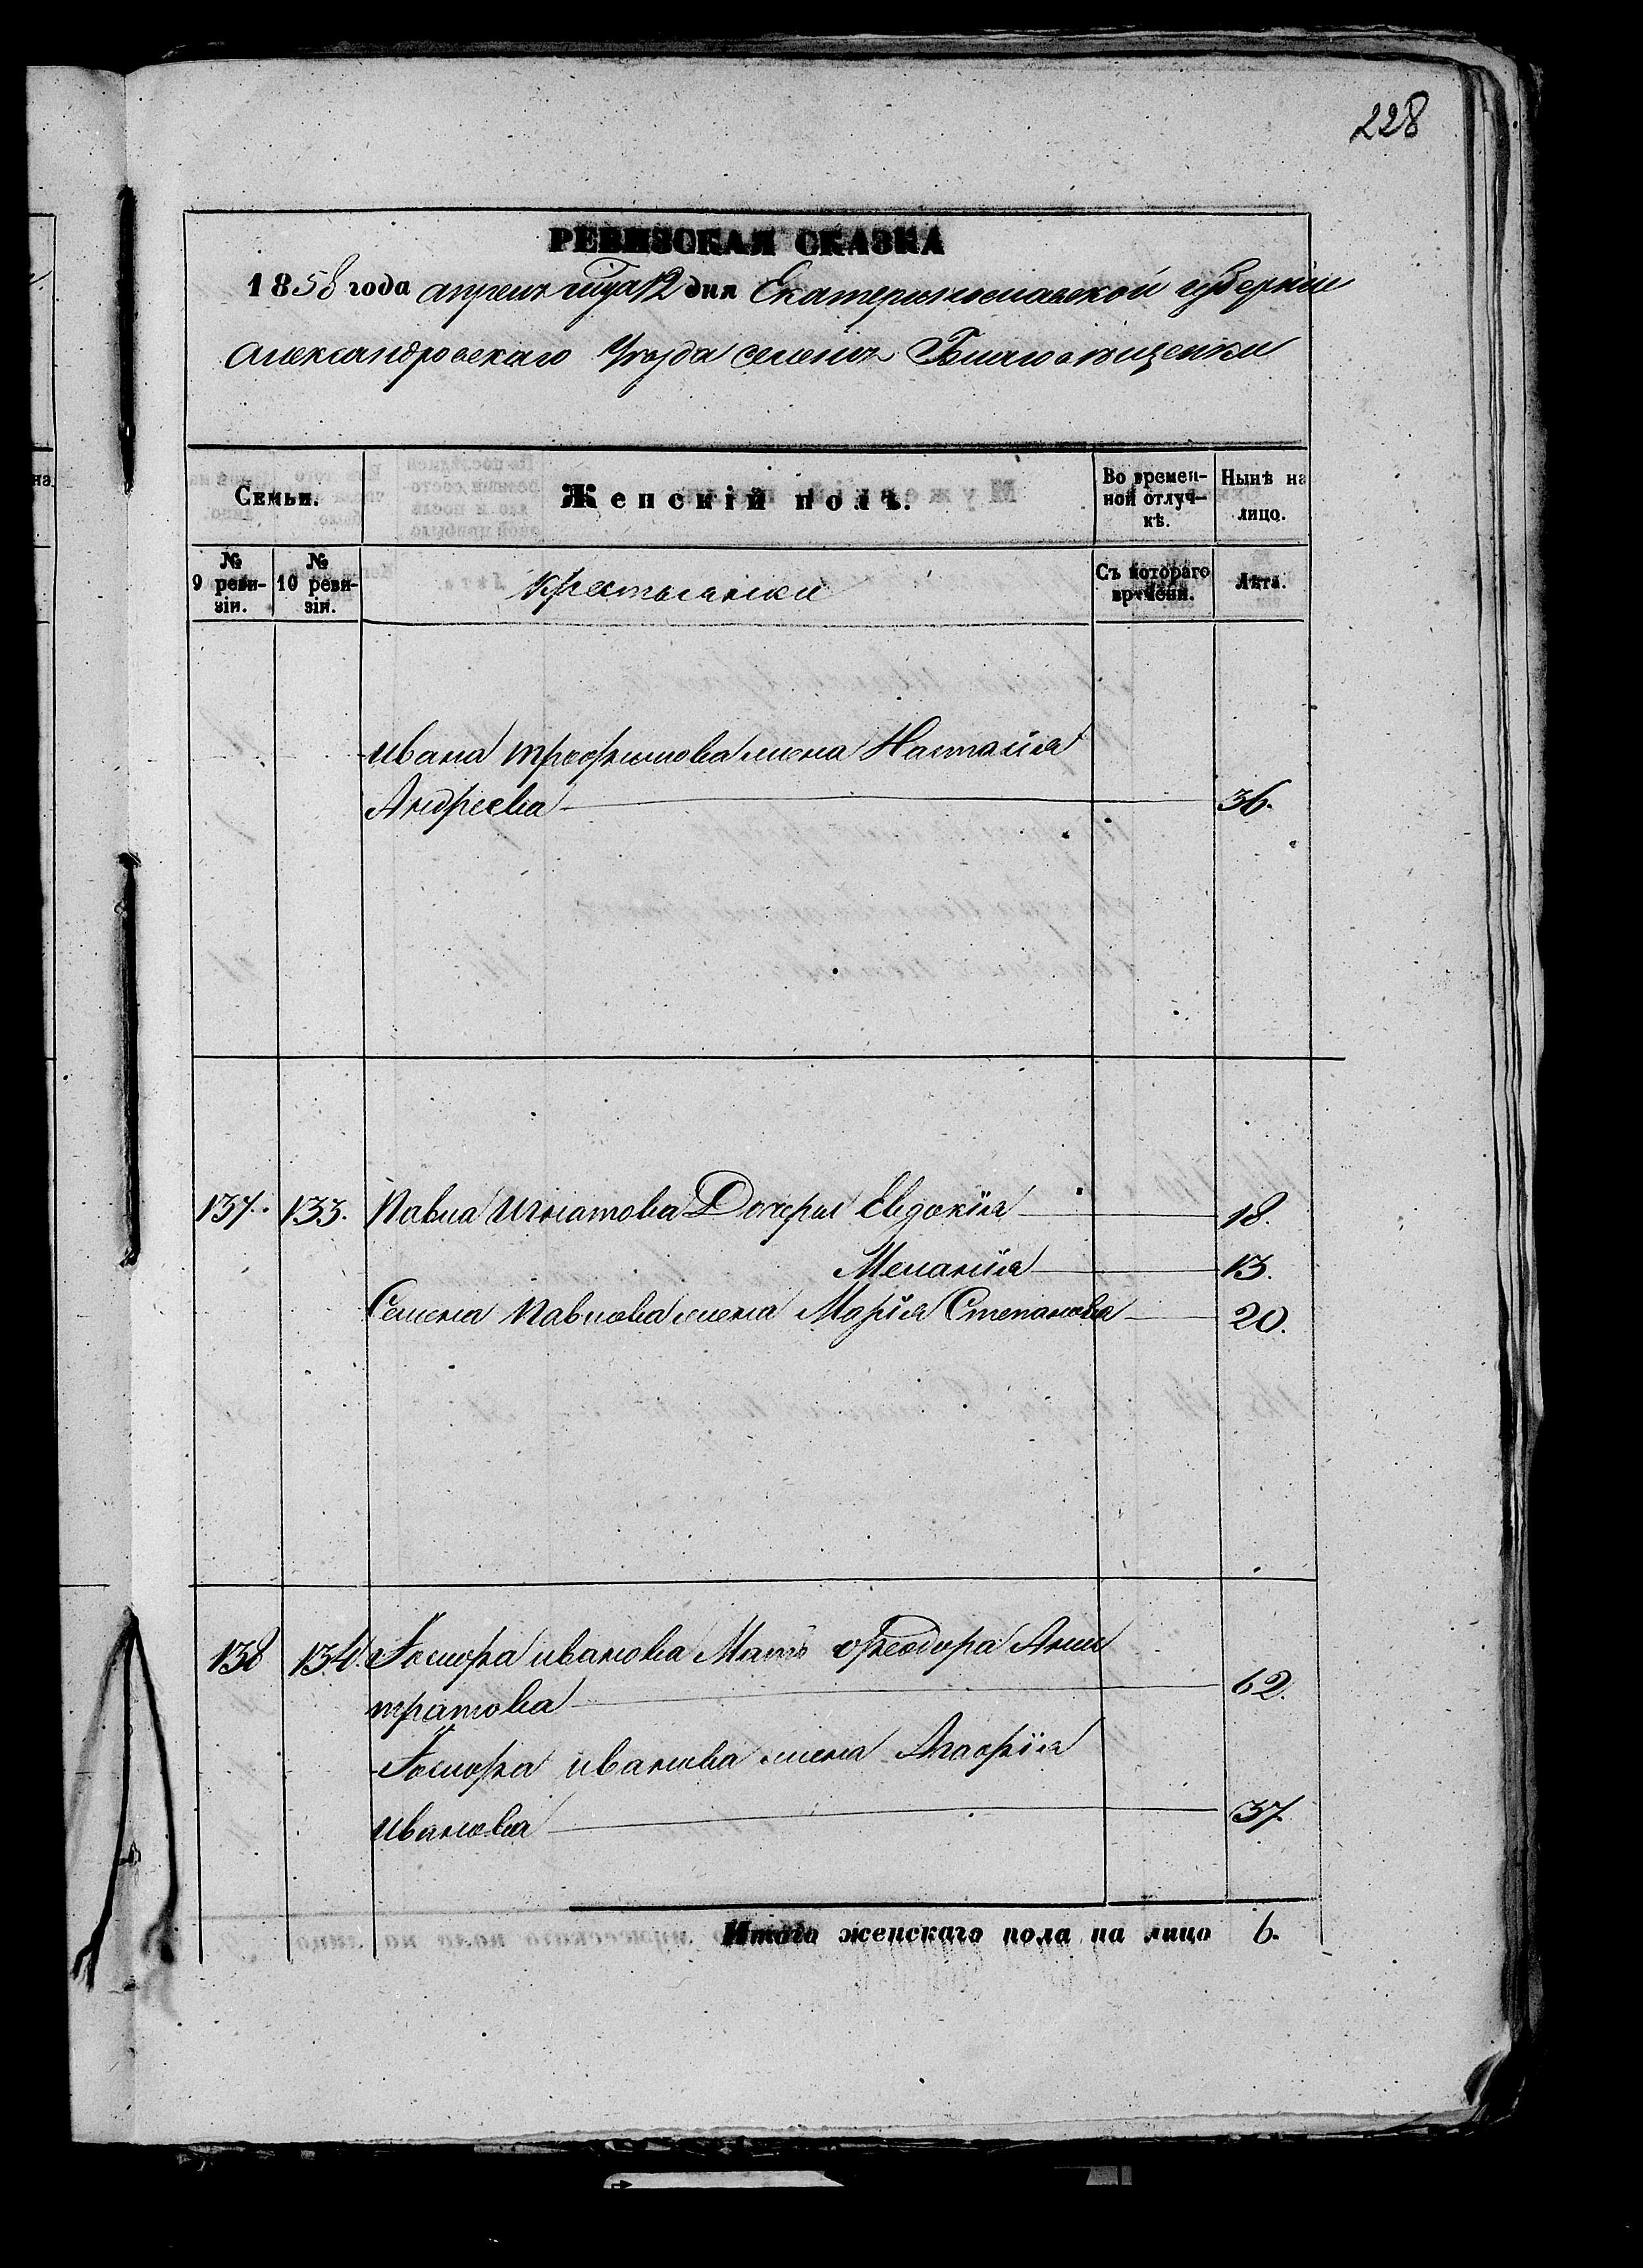 228
РЕВИЗСКАЯ СКАЗКА
1858 года апреля 12 дня Екатеринославской губерніи
Александровскаго Уезда селенія Благовещенки
Семьи.
Женскій полъ.
Во времен-
ной отлуч-
кѣ.
Нынѣ на
лицо.
№
9 реви-
зіи.
№
10 реви-
зіи.
Крестьянки
Съ котораго
времени.
Лѣта.
Ивана Трофимова жена Настасія
Андреева 36.
137. 133. Павла Игнатова Дочери Евдокія 18.
Меланія 13.
Семена Павлова жена Марія Степанова 20.
138 134. Іосифа иванова Мать Феодора
62.
Іосифа иванова жена Агафія
иванова 37
Итого женскаго пола на лицо 6.